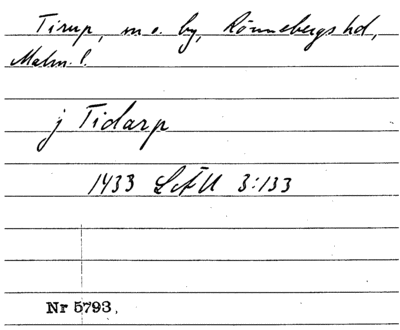 Tirup, m o. by, Rönnebergs hd,
Malm. l.
j Tidarp
1433 LÄU 3:133
Nr 5793,